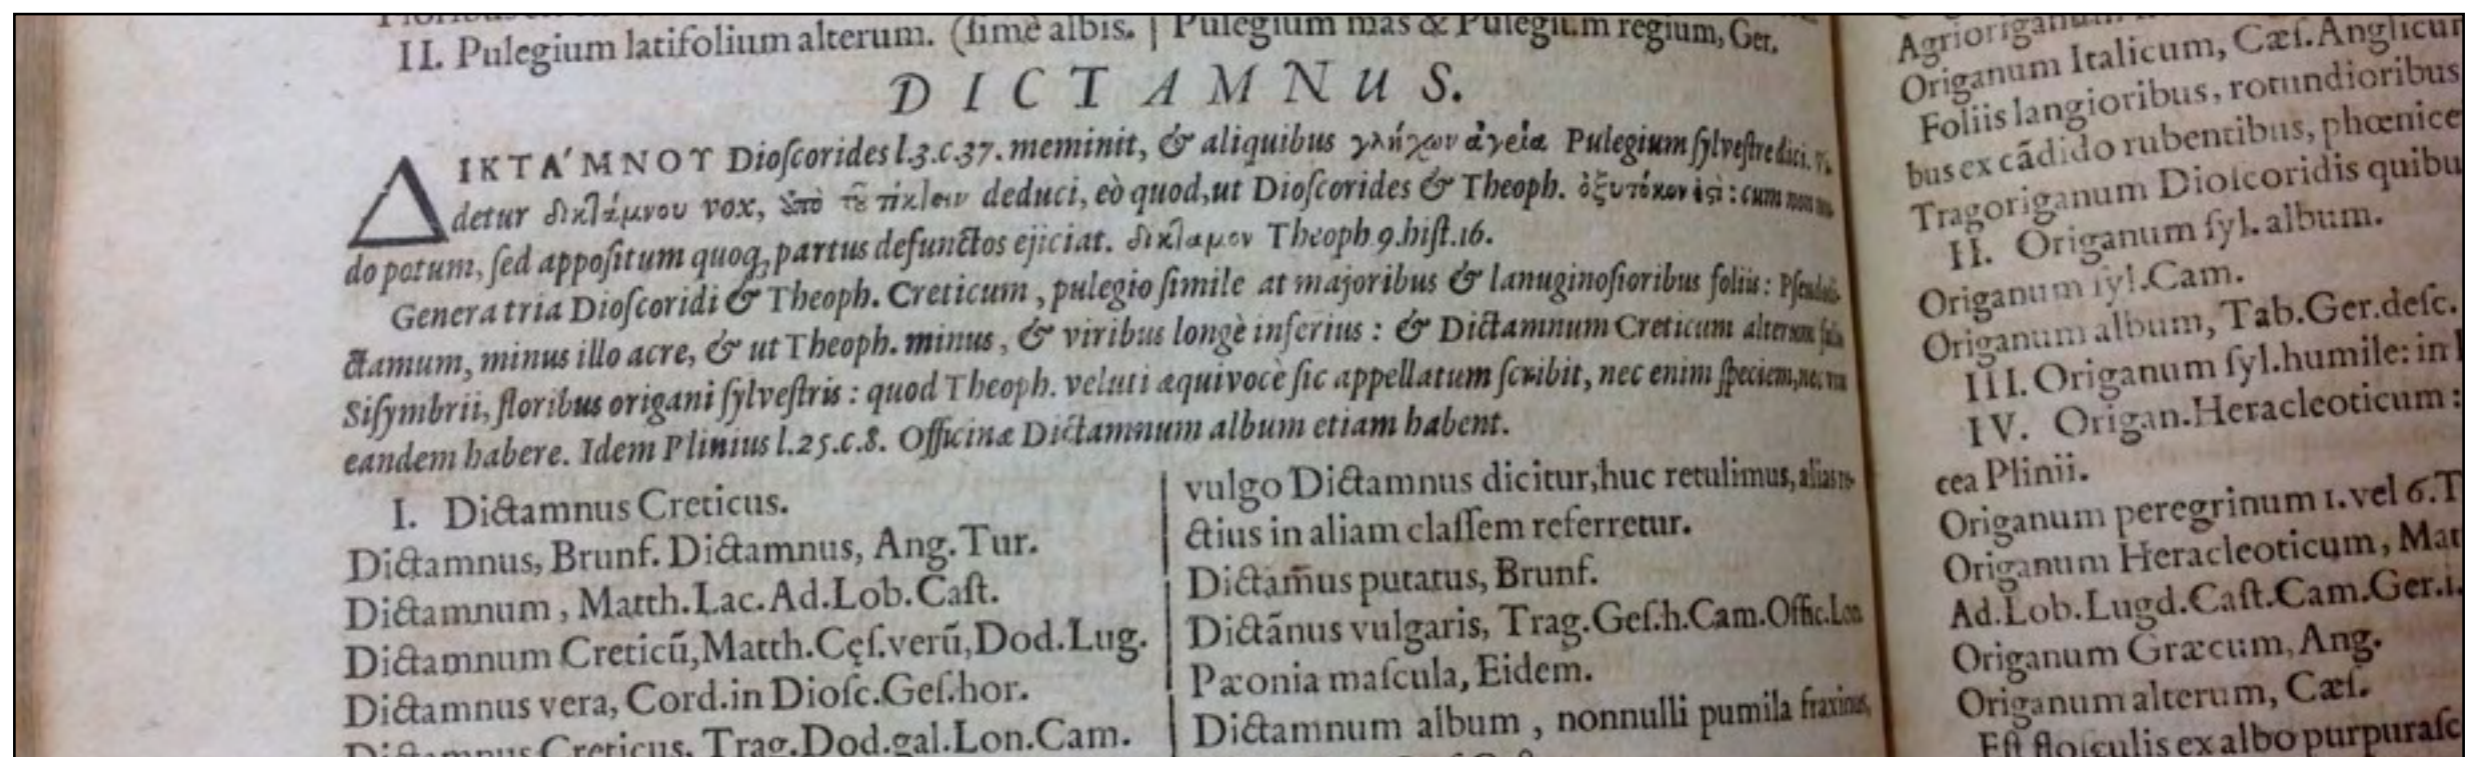 II. Pulegium latifolium alterum. (ſimè albis. | Pulegium mas & Pulegium regium, Ger.
DICTAMNUS.
ΔΙΚΤΑ'ΜΝΟΥ Dioſcorides l.3.c.37. meminit, & aliquibus γλήχων ἀγεία Pulegium ſylveſtre dici.
detur δικτάμνου vox, ἀπὸ τῦ τίκτειν deduci, eò quod, ut Dioſcorides & Theoph. ὀξυτόκον ἐςὶ: cum non
do potum, ſed appoſitum quoq; partus defunctos ejiciat. δίκταμον Theoph. 9.hiſt.16.
Genera tria Dioſcoridi & Theoph. Creticum, pulegio ſimile at majoribus & lanuginoſioribus foliis:
ctamum, minus illo acre, & ut Theoph. minus, & viribus longè inferius: & Dictamnum Creticum alterum
Siſymbrii, floribus origani ſylveſtris: quod Theoph. veluti æquivocè ſic appellatum ſcribit, nec enim ſpeciem,
eandem habere. Idem Plinius l.25.c.8. Officinæ Dictamnum album etiam habent.
I. Dictamnus Creticus.
Dictamnus, Brunf. Dictamnus, Ang. Tur.
Dictamnum, Matth. Lac. Ad. Lob. Caſt.
Dictamnum Creticū, Matth. Cęſ. verū, Dod. Lug.
Dictamnus vera, Cord. in Dioſc. Geſ. hor.
Dictamnus Creticus, Trag. Dod. gal. Lon. Cam.
vulgo Dictamnus dicitur, huc retulimus, alias
ctius in aliam claſſem referretur.
Dictam̄us putatus, Brunf.
Dictānus vulgaris, Trag. Geſ. h. Cam. Offic. Lon.
Pæonia maſcula, Eidem.
Dictamnum album, nonnulli pumila fraxinus,
Origanum Italicum, Cæſ. Anglicum
Foliis langioribus, rotundioribus
bus ex cādido rubentibus, phœnice
Tragoriganum Dioſcoridis quibu
II. Origanum ſyl. album.
Origanum ſyl. Cam.
Origanum album, Tab. Ger. deſc.
III. Origanum ſyl. humile: in
IV. Origan. Heracleoticum:
cea Plinii.
Origanum peregrinum 1. vel 6. T
Origanum Heracleoticum, Mat
Ad. Lob. Lugd. Caſt. Cam. Ger. i.
Origanum Græcum, Ang.
Origanum alterum, Cæſ.
Eſt floſculis ex albo purpuraſc